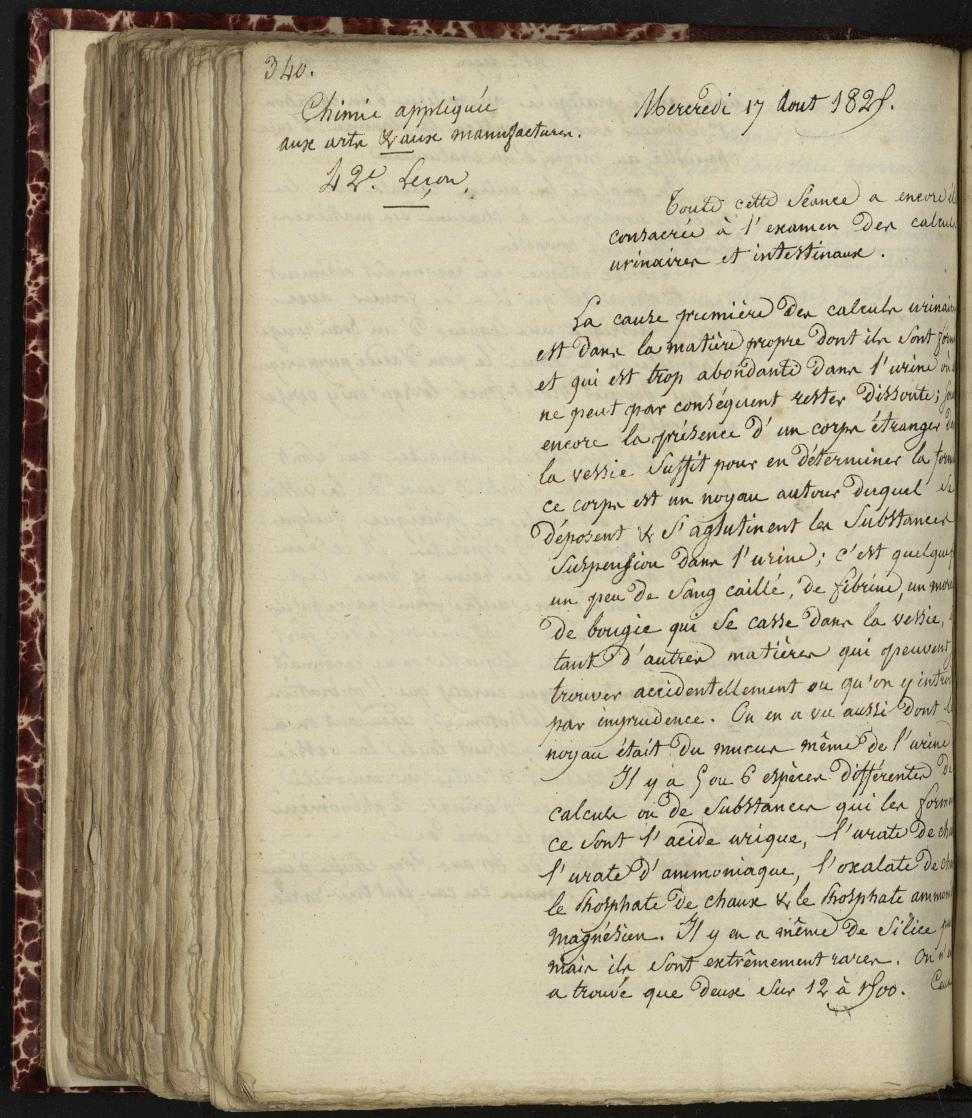 340.
Chimie appliquée
aux arts & aux manufactures.
42e. Leçon.
Mercredi 17 Aout 1825.
Toute cette Séance a encore
consacrée à l'examen des calculs
urinaires et intestinaux.
La cause première des calculs urinaires
est dans la matière propre dont ils sont
et qui est trop abondante dans l'urine
ne peut par conséquent rester dissoute;
encore la présence d'un corps étranger
la vessie suffit pour en déterminer la
ce corps est un noyau autour duquel se
déposent & s'aglutinent les substances
suspension dans l'urine; c'est quelque
un peu de sang caillé, de fibrine, un
de bougie qui se casse dans la vessie,
tant d'autres matières qui peuvent
trouver accidentellement ou qu'on y
par imprudence. On en a vu aussi dont
noyau était du mucus même de l'urine
Il y a 5 ou 6 espèces différentes de
calculs ou de substances qui les
ce sont l'acide urique, l'urate de
l'urate d'ammoniaque, l'oxalate de
le Phosphate de chaux & le Phosphate
magnésien. Il y en a même de Silice
mais ils sont extrêmement rares. On
a trouvé que deux sur 12 à 1500.